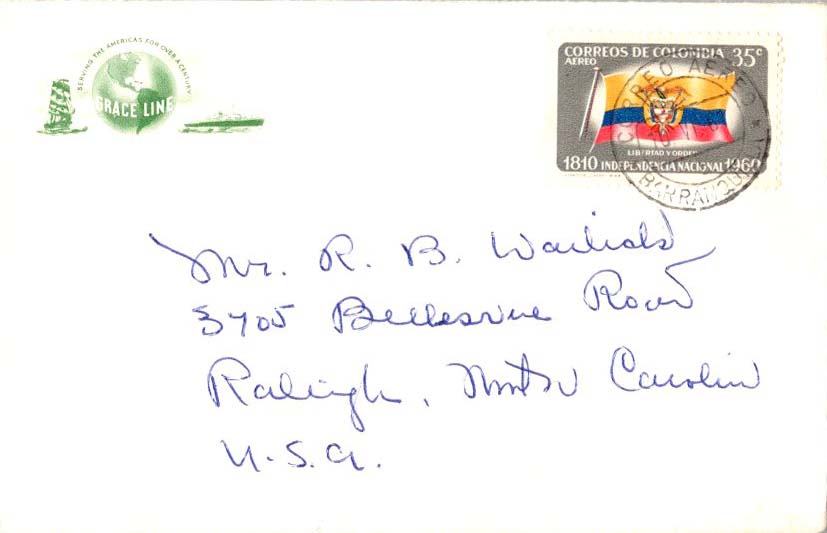 SERVING THE AMERICAS FOR OVER A CENTURY
GRACE LINE
CORREOS DE COLOMBIA 35c
AEREO
LIBERTAD Y ORDEN
1810 INDEPENDENCIA NACIONAL 1960
CORREO AEREO
BARRANQUILLA
Mr. R. B.
Road
Raleigh, North Carolina
U.S.A.